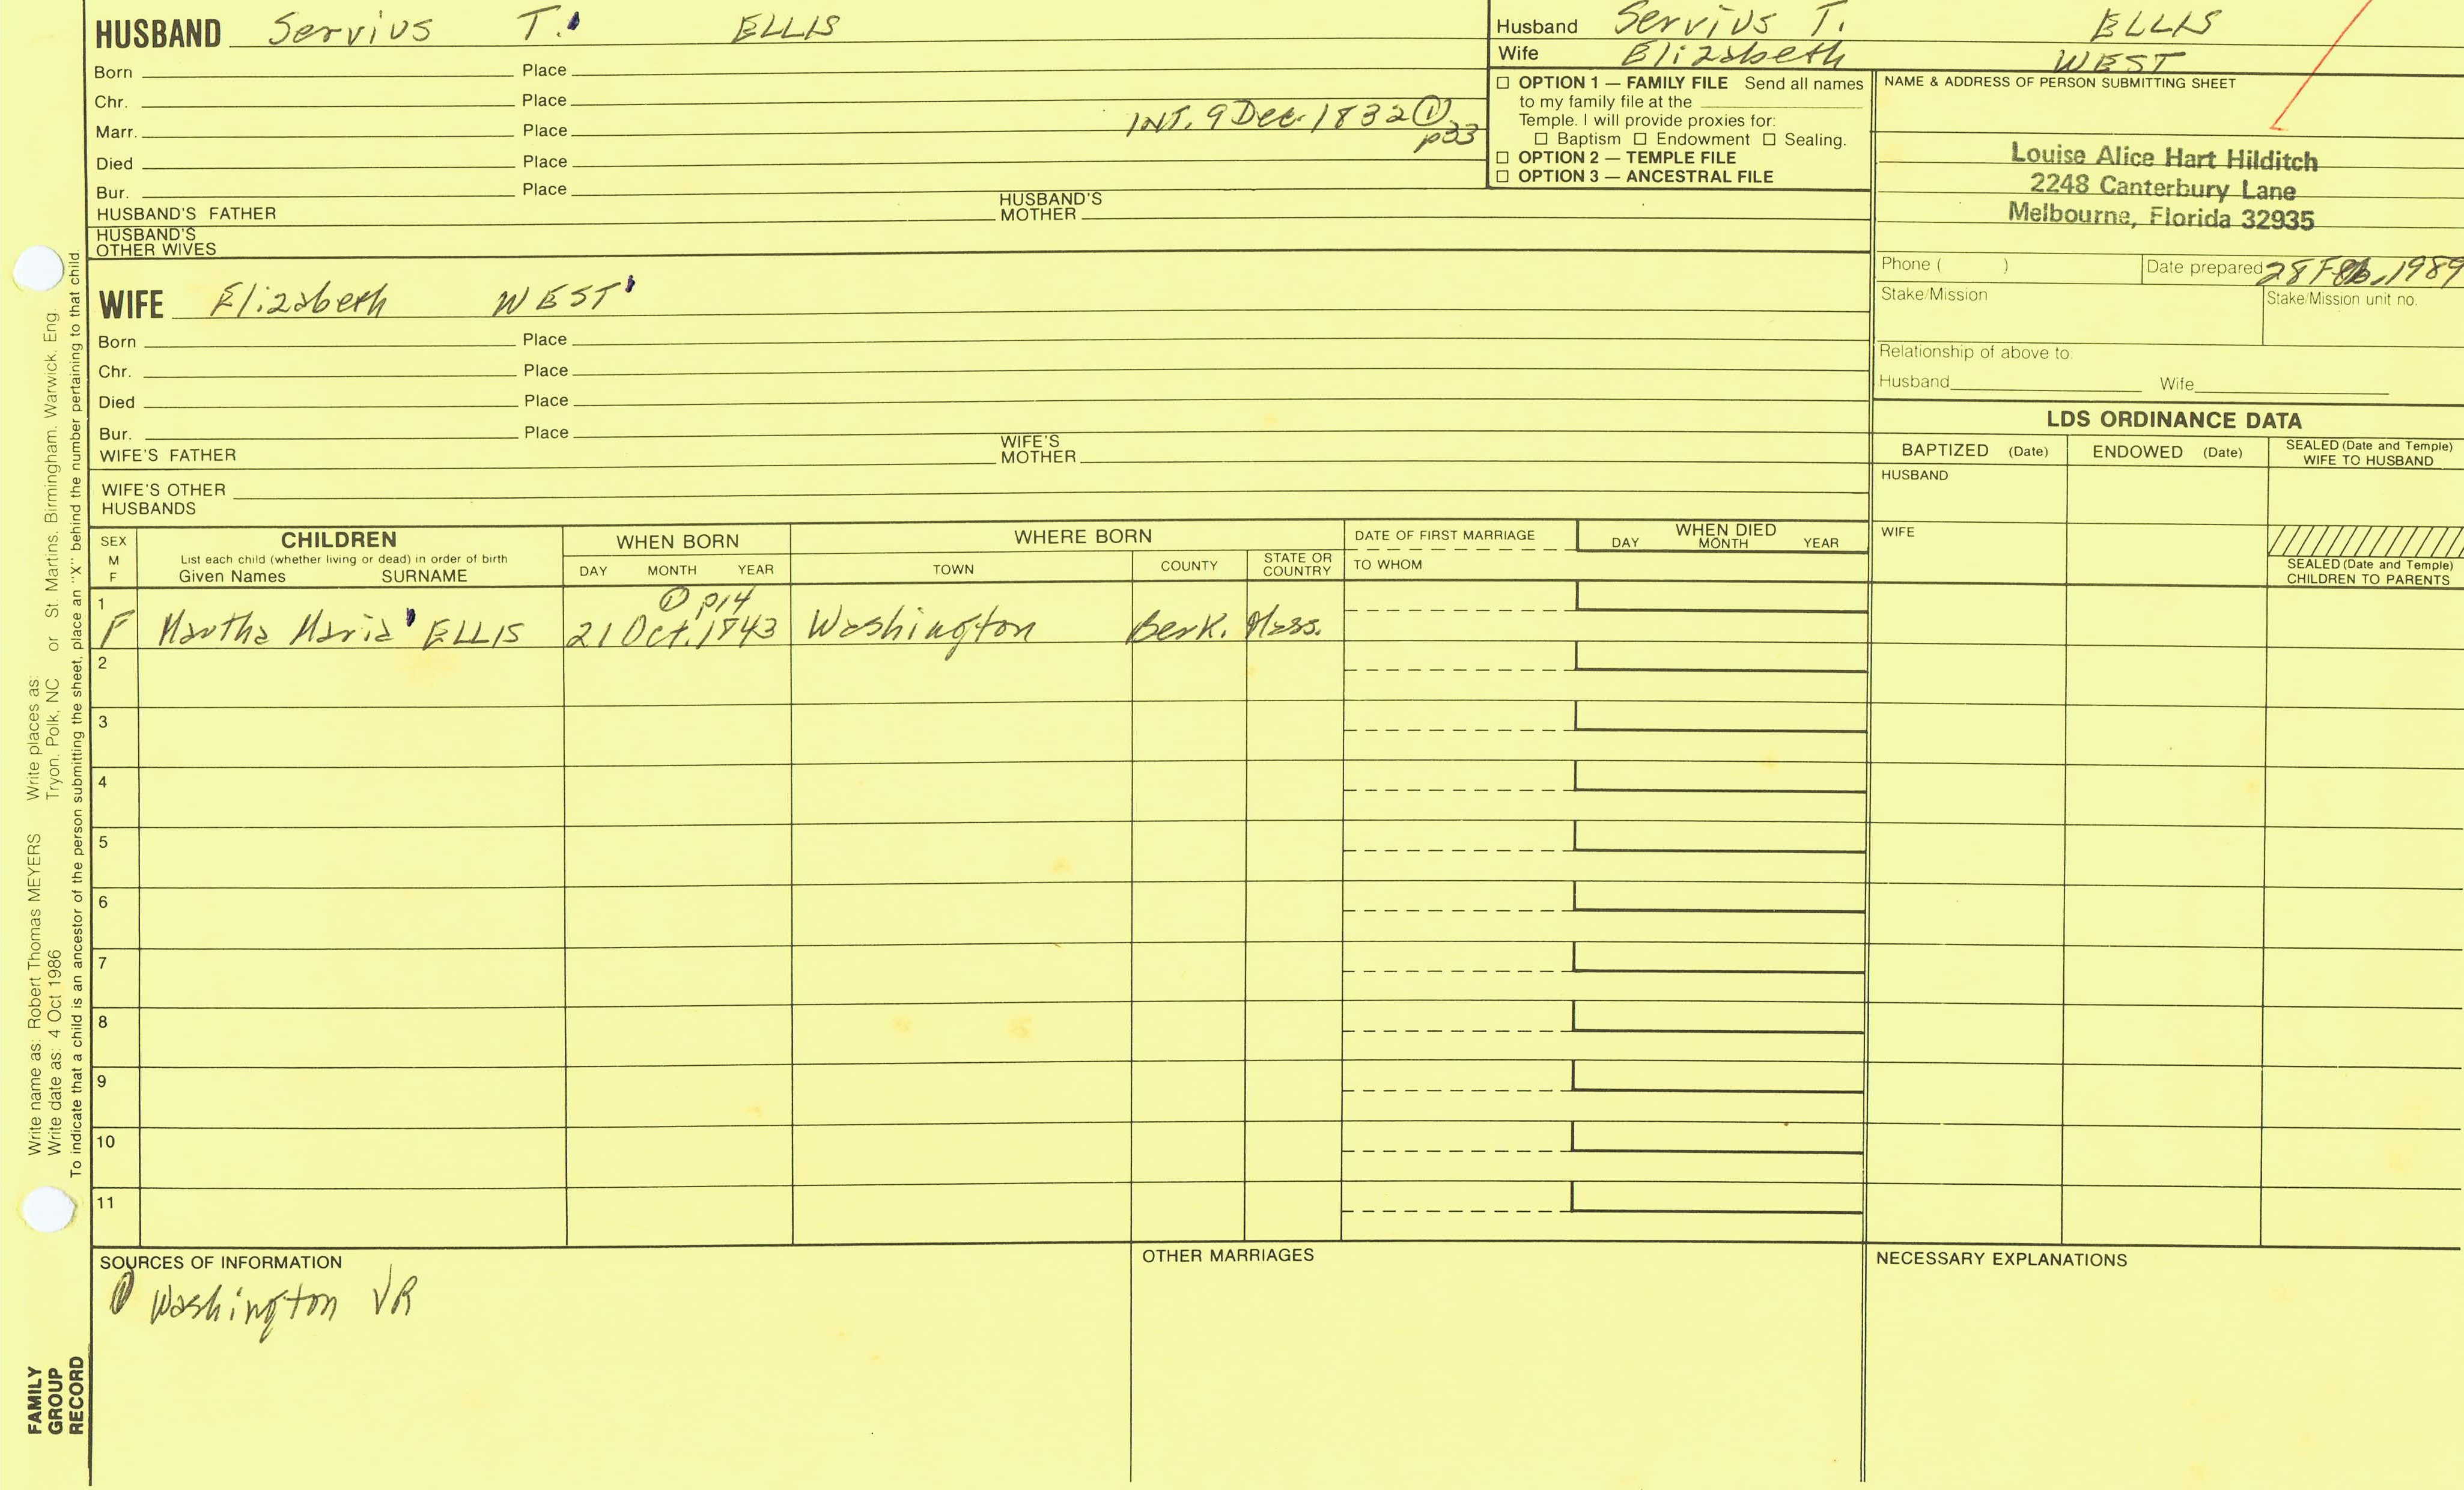 HUSBAND Servius T. ELLIS
Born Place
Chr. Place
Marr. Place INT. 9 Dec. 1832 ① p33
Died Place
Bur. Place
HUSBAND'S FATHER HUSBAND'S MOTHER
HUSBAND'S OTHER WIVES
Husband Servius T. ELLIS
Wife Elizabeth WEST
☐ OPTION 1 — FAMILY FILE Send all names
to my family file at the
Temple. I will provide proxies for:
☐ Baptism ☐ Endowment ☐ Sealing.
☐ OPTION 2 — TEMPLE FILE
☐ OPTION 3 — ANCESTRAL FILE
NAME & ADDRESS OF PERSON SUBMITTING SHEET
Louise Alice Hart Hilditch
2248 Canterbury Lane
Melbourne, Florida 32935
Phone ( ) Date prepared 28 Feb. 1989
Stake/Mission Stake/Mission unit no.
Relationship of above to:
Husband Wife
WIFE Elizabeth WEST
Born Place
Chr. Place
Died Place
Bur. Place
WIFE'S FATHER WIFE'S MOTHER
WIFE'S OTHER
HUSBANDS
LDS ORDINANCE DATA
BAPTIZED (Date) ENDOWED (Date) SEALED (Date and Temple) WIFE TO HUSBAND
HUSBAND
WIFE
SEALED (Date and Temple)
CHILDREN TO PARENTS
SEX M F
CHILDREN
List each child (whether living or dead) in order of birth
Given Names SURNAME
WHEN BORN
DAY MONTH YEAR
WHERE BORN
TOWN COUNTY STATE OR COUNTRY
DATE OF FIRST MARRIAGE
TO WHOM
WHEN DIED
DAY MONTH YEAR
1 ① p14
F Martha Maria ELLIS 21 Oct. 1843 Washington Berk. Mass.
2
3
4
5
6
7
8
9
10
11
SOURCES OF INFORMATION
① Washington VR
OTHER MARRIAGES
NECESSARY EXPLANATIONS
Write name as: Robert Thomas MEYERS Write places as:
Write date as: 4 Oct 1986 Tryon, Polk, NC or St. Martins, Birmingham, Warwick, Eng.
To indicate that a child is an ancestor of the person submitting the sheet, place an "X" behind the number pertaining to that child.
FAMILY
GROUP
RECORD